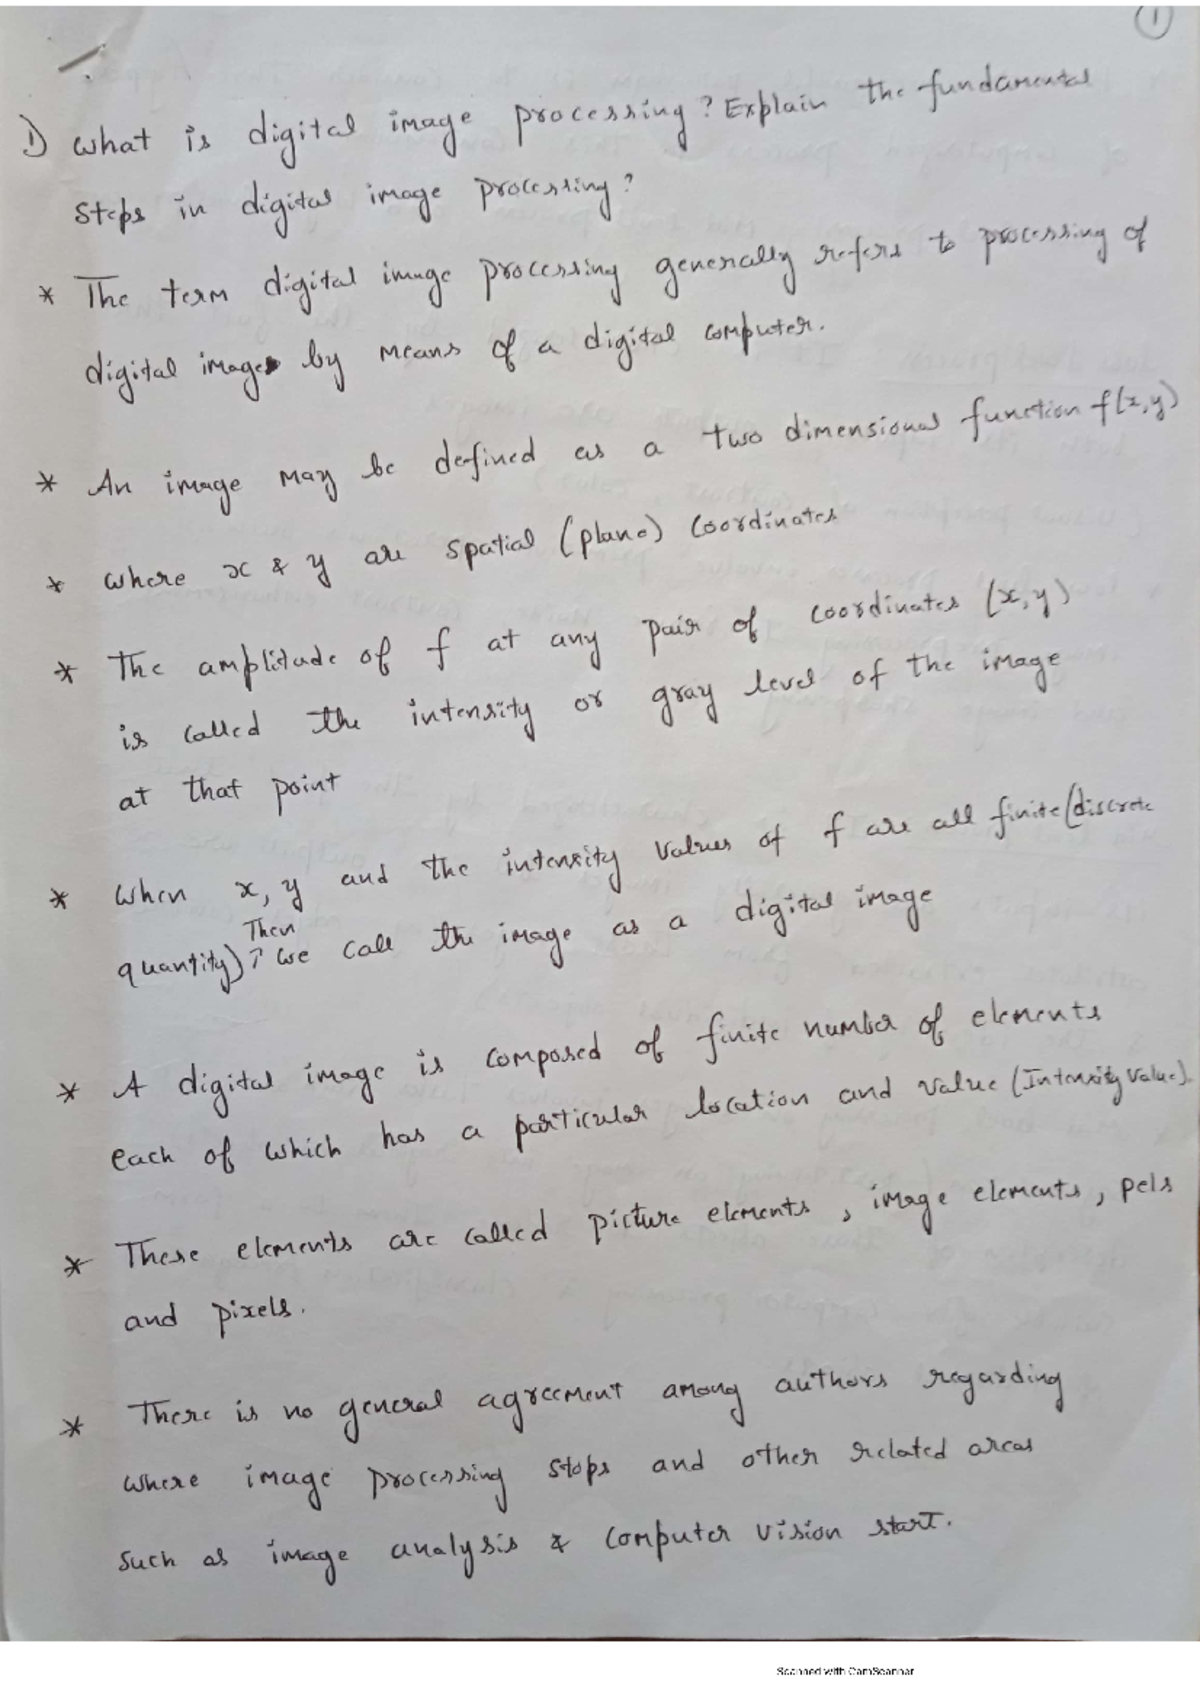 1
1) What is digital image processing? Explain the fundamental
steps in digital image processing?
* The term digital image processing generally refers to processing of
digital image by means of a digital computer.
* An image may be defined as a two dimensional function f(x,y)
* where x & y are spatial (plane) coordinates
* The amplitude of f at any pair of coordinates (x,y)
is called the intensity or gray level of the image
at that point
* When x, y and the intensity values of f are all finite (discrete
Then
quantity) ↑ we call the image as a digital image
* A digital image is composed of finite number of elements
each of which has a particular location and value (Intensity value).
* These elements are called picture elements, image elements, pels
and pixels.
* There is no general agreement among authors regarding
where image processing stops and other related areas
such as image analysis & computer vision start.
Scanned with CamScanner